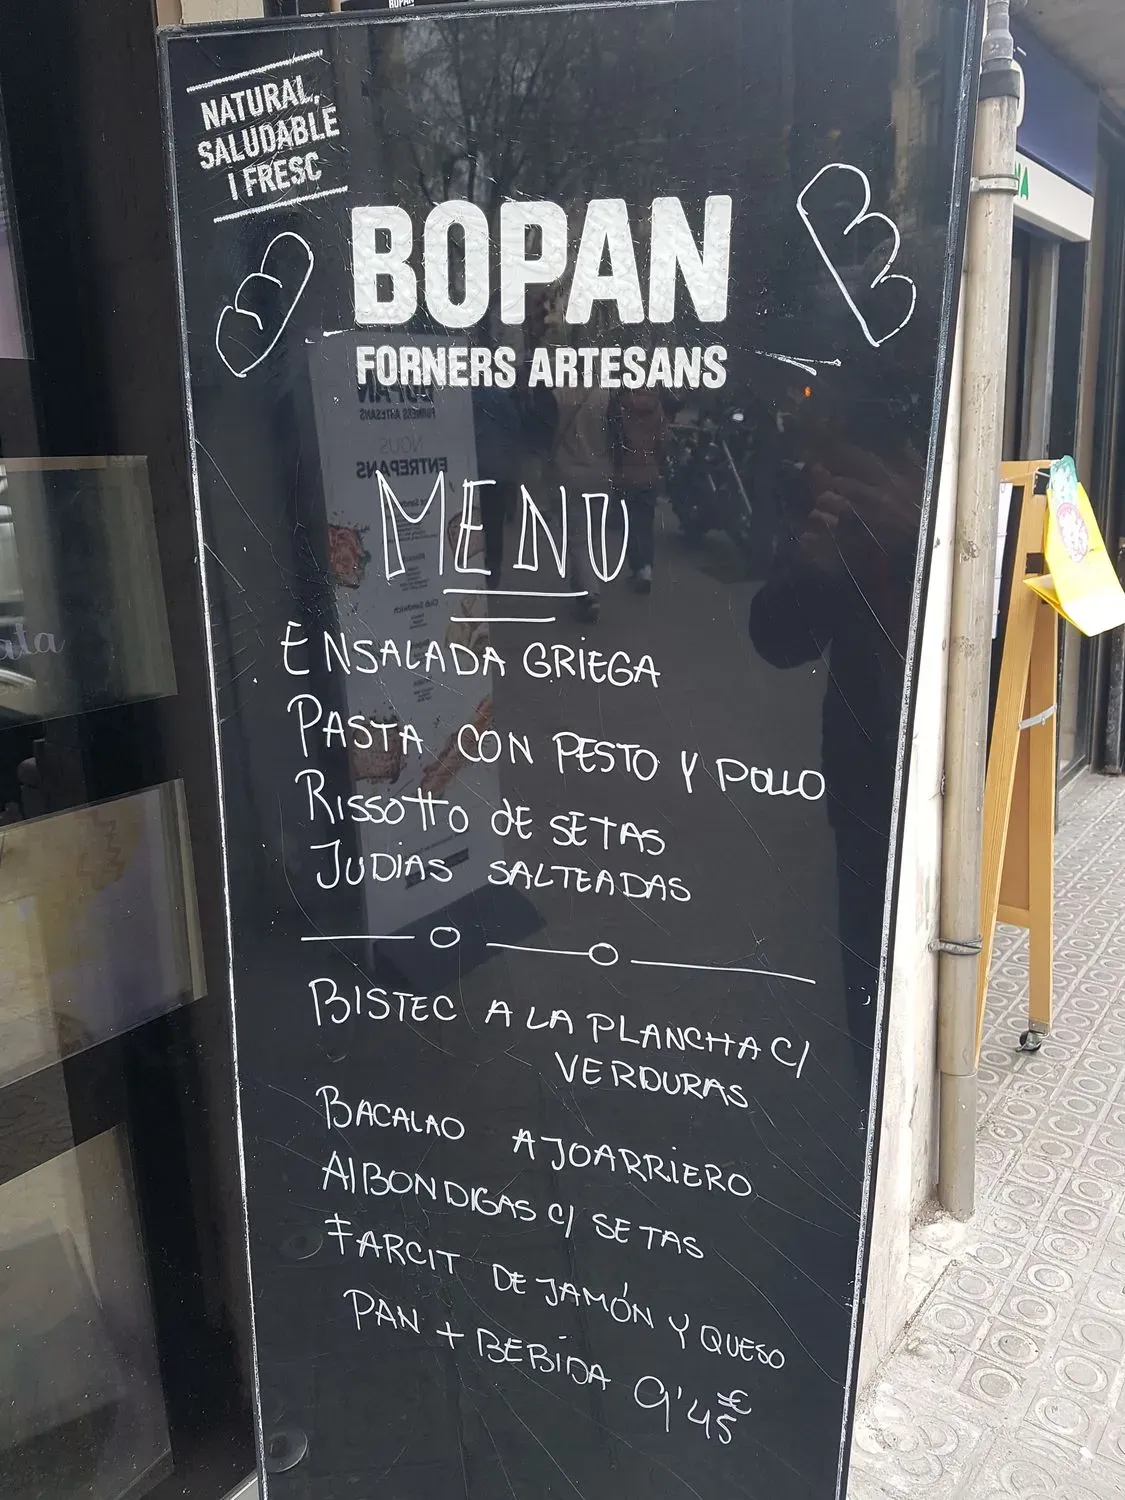 NATURAL,
SALUDABLE
I FRESC
BOPAN
FORNERS ARTESANS
MENU
ENSALADA GRIEGA
PASTA CON PESTO Y POLLO
RISSOTTO DE SETAS
JUDIAS SALTEADAS
BISTEC A LA PLANCHA C/
VERDURAS
BACALAO AJOARRIERO
AlBONDIGAS C/ SETAS
FARCIT DE JAMÓN Y QUESO
PAN + BEBIDA 9'45€
BOPAN
FORNERS ARTESANS
NOUS
ENTREPANS
Club Sandwich